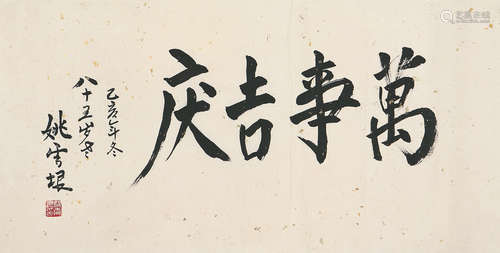 萬事吉庆
乙亥年冬
八十五岁老
姚雪垠